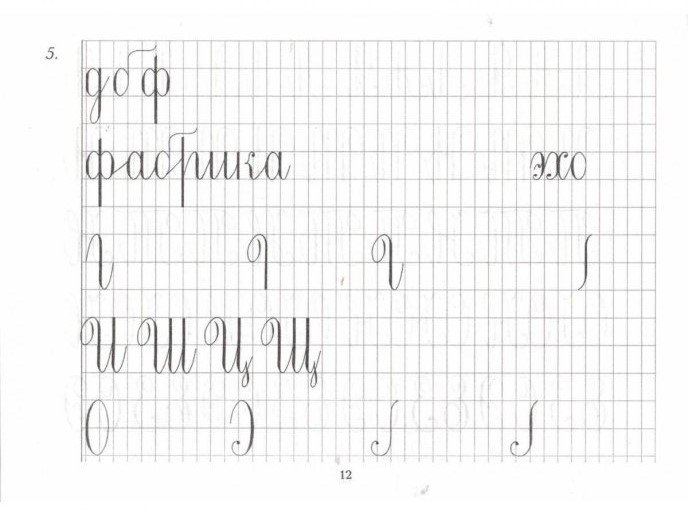 5.
д б ф
фабрика эхо
И Ш Ц Щ
О Э
12